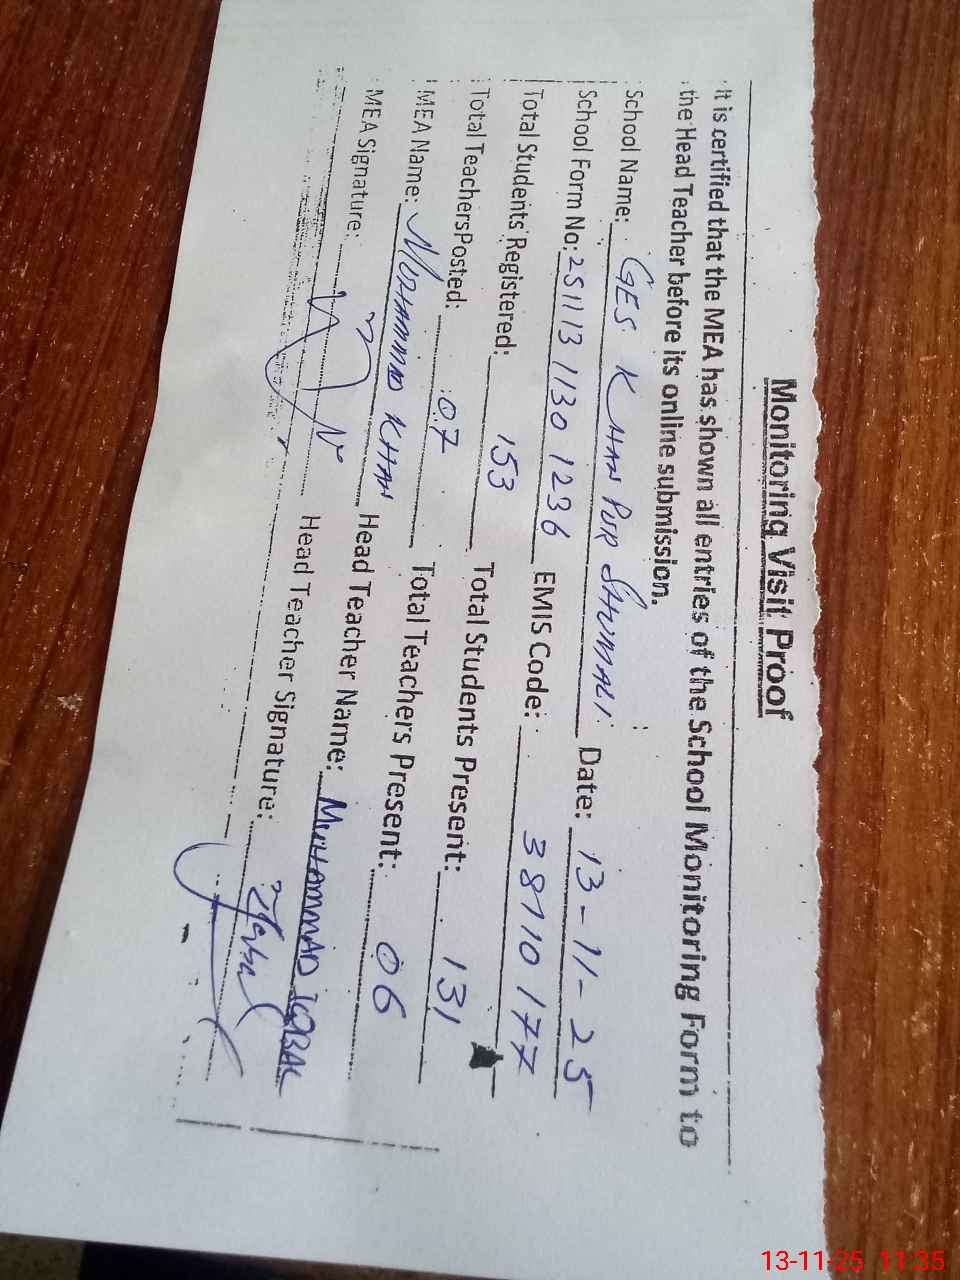 Monitoring Visit Proof
It is certified that the MEA has shown all entries of the School Monitoring Form to
the Head Teacher before its online submission.
School Name: GES KHAN PUR SHUMALI Date: 13-11-25
School Form No: 25111311301236 EMIS Code: 38710177
Total Students Registered: 153 Total Students Present: 131
Total Teachers Posted: 07 Total Teachers Present: 06
MEA Name: MUHAMMAD KHAN Head Teacher Name: MUHAMMAD IQBAL
MEA Signature: Head Teacher Signature:
13-11-25 11:35